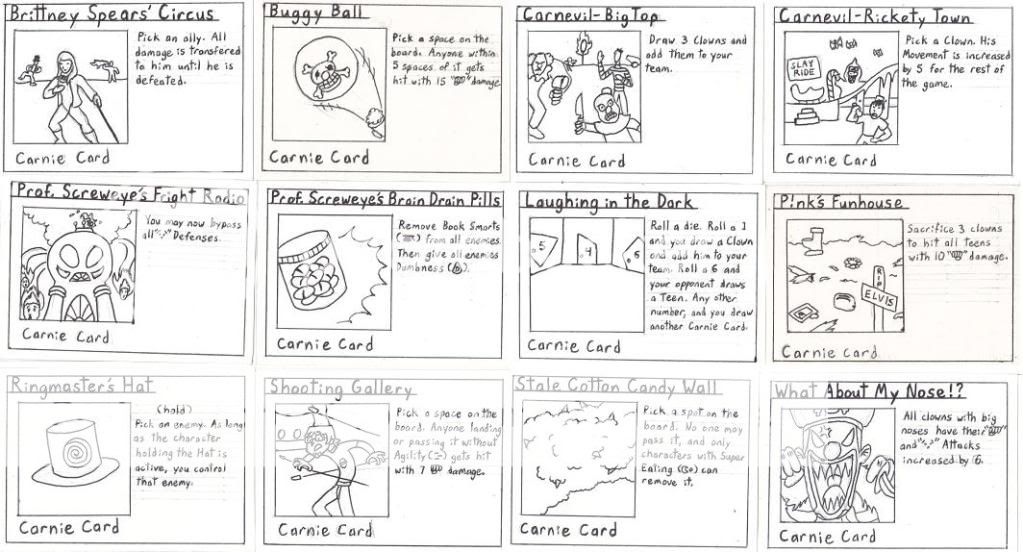 Brittney Spears' Circus
Pick an ally. All
damage is transfered
to him until he is
defeated.
Carnie Card
Buggy Ball
Pick a space on the
board. Anyone within
5 spaces of it gets
hit with 15 " " damage.
Carnie Card
Carnevil-Big Top
Draw 3 Clowns and
add them to your
team.
Carnie Card
Carnevil-Rickety Town
SLAY
RIDE
Pick a Clown. His
Movement is increased
by 5 for the rest of
the game.
Carnie Card
Prof. Screweye's Fright Radio
You may now bypass
all " " Defenses.
Carnie Card
Prof. Screweye's Brain Drain Pills
Remove Book Smarts
( ) from all enemies.
Then give all enemies
Dumbness ( ).
Carnie Card
Laughing in the Dark
5
4
6
Roll a die. Roll a 1
and you draw a Clown
and add him to your
team. Roll a 6 and
your opponent draws
a Teen. Any other
number, and you draw
another Carnie Card.
Carnie Card
P!nk's Funhouse
RIP
ELVIS
Sacrifice 3 clowns
to hit all Teens
with 10 " " damage.
Carnie Card
Ringmaster's Hat
(hold)
Pick an enemy. As long
as the character
holding the Hat is
active, you control
that enemy.
Carnie Card
Shooting Gallery
Pick a space on the
board. Anyone landing
or passing it without
Agility ( ) gets hit
with 7 damage.
Carnie Card
Stale Cotton Candy Wall
Pick a spot on the
board. No one may
pass it, and only
characters with Super
Eating ( ) can
remove it.
Carnie Card
What About My Nose!?
All clowns with big
noses have their " "
and " " Attacks
increased by 5.
Carnie Card